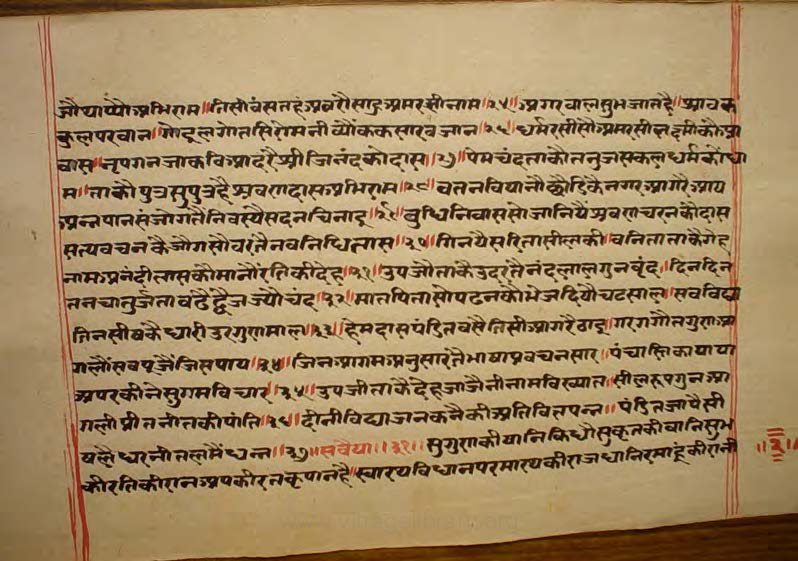 जौ याप्यौ अभिराम ॥ तिसी वंस तहं अवतरौ साहु अमरसी नाम ॥२५॥ अगरवाल सुभ जात है ॥ श्रावक
कुल परवान ॥ गोइल गोत सिरोमनी व्यौंक कसावर जान ॥२६॥ धर्मरसी सौ अमरसी लछमी कौ आ
वास ॥ नृपगन जाकौ आदरै श्री जिनंद को दास ॥२७॥ पेमचंद ता कौ तनुज सकल धर्म कौ धा
म ॥ ता कौ पुत्र सुपुत्र है श्रवणदास अभिराम ॥२८॥ वतन वियानौ छोडि कै नगर आगरै आय
अन्नपान संजोग तै निवस्यै सदन चिनाइ ॥२९॥ बुधिनिवास सो जानियै श्रवण चरन कौ दास
सत्य वचन कै जोग सौ वरतै नव निधि तास ॥३०॥ गिनयै सरिता सील की ॥ वनिता ता कै गेह
नाम अनंदी तास कौ मानौ रति की देह ॥३१॥ उपजौ ता कै उदर तै नंदलाल गुन वृंद ॥ दिन दिन
तन चातुर्जता वढै द्वैज ज्यौ चंद ॥३२॥ मात पिता सो पढन कौ भेज दियौ चटसाल ॥ सव विद्या
तिन सीष कै धारी उर गुरामाल ॥३३॥ हेमदास पंडित वसै तिसी आगरै ठाइ ॥ गरग गौत गुरा आ
गलौ सव पूजै जिस पाय ॥३४॥ जिन आगम अनुसार तै भाषा प्रवचनसार ॥ पंचास्तिकाया या
अपर कीने सुगम विचार ॥३५॥ उपजी ता कै देहजा जैनी नाम विख्यात ॥ सील रूप गुन आ
गली प्रीत नीत की पांति ॥३६॥ दीनी विद्या जनक सै की अति वितपन्न ॥ पंडित जापै सी
षलै धरनीतल मैं धन्न ॥३७॥ सवैया ॥३१॥ सुगुरा की षानि किधौ सुकृत की वानि सुभ
कीरति की रान अपकीरत कृपान है ॥ स्वारथ विधान परमारथ की राजधानि रमाहूं की रानी
॥२॥
www.vitragelibrary.org